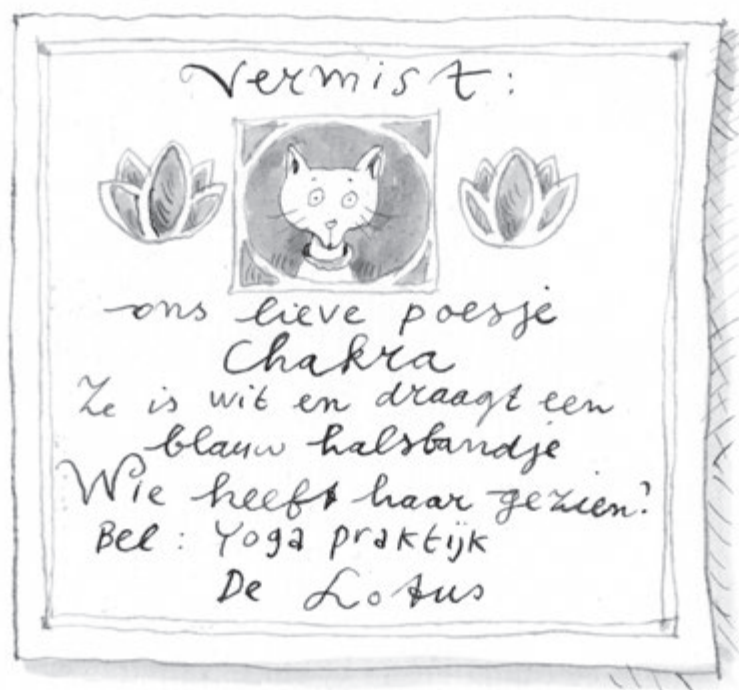 Vermist:
ons lieve poesje
Chakra
Ze is wit en draagt een
blauw halsbandje
Wie heeft haar gezien?
Bel: Yoga praktijk
De Lotus